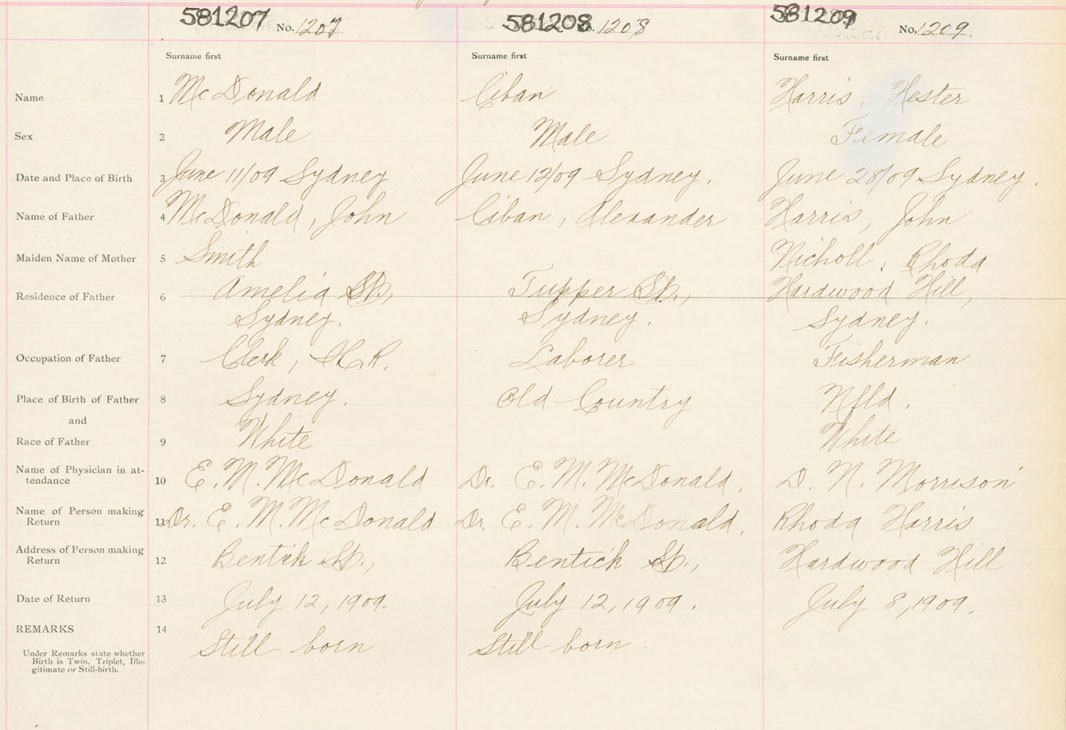 581207 No. 1207 581208 No. 1208 581209 No. 1209
Surname first Surname first Surname first
Name 1 McDonald Ciban Harris, Hester
Sex 2 Male Male Female
Date and Place of Birth 3 June 11/09 Sydney June 12/09 Sydney. June 28/09 Sydney.
Name of Father 4 McDonald, John Ciban, Alexander Harris, John
Maiden Name of Mother 5 Smith Nicholl, Rhoda
Residence of Father 6 Amelia St., Tupper St., Hardwood Hill,
Sydney. Sydney. Sydney.
Occupation of Father 7 Clerk, I.C.R. Laborer Fisherman
Place of Birth of Father 8 Sydney. Old Country Nfld.
and
Race of Father 9 White White
Name of Physician in at-
tendance 10 E. M. McDonald Dr. E. M. McDonald. D. N. Morrison
Name of Person making
Return 11 Dr. E. M. McDonald Dr. E. M. McDonald. Rhoda Harris
Address of Person making
Return 12 Bentick St., Bentick St., Hardwood Hill
Date of Return 13 July 12, 1909. July 12, 1909. July 8, 1909.
REMARKS 14 Still-born. Still-born.
Under Remarks state whether
Birth is Twin, Triplet, Ille-
gitimate or Still-birth.